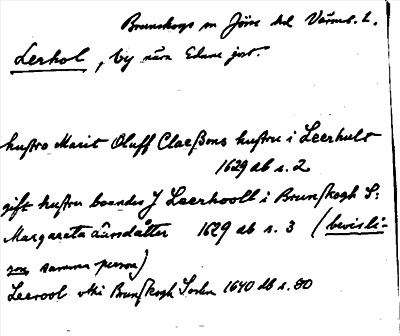 Brunskogs sn Jösse hd Värml. l.
Lerhol, by nära Edane jst.
hustro Marit Oluff Claeßons hustru i Leerhult
1629 db s. 2
gift hustru boendes J Leerhooll i Brunskogh S:
Margareta Larsdåtter 1629 db s. 3 (bevisli-
gen samma person)
Leerool uthi Brunskogh Sochn 1640 db s. 80